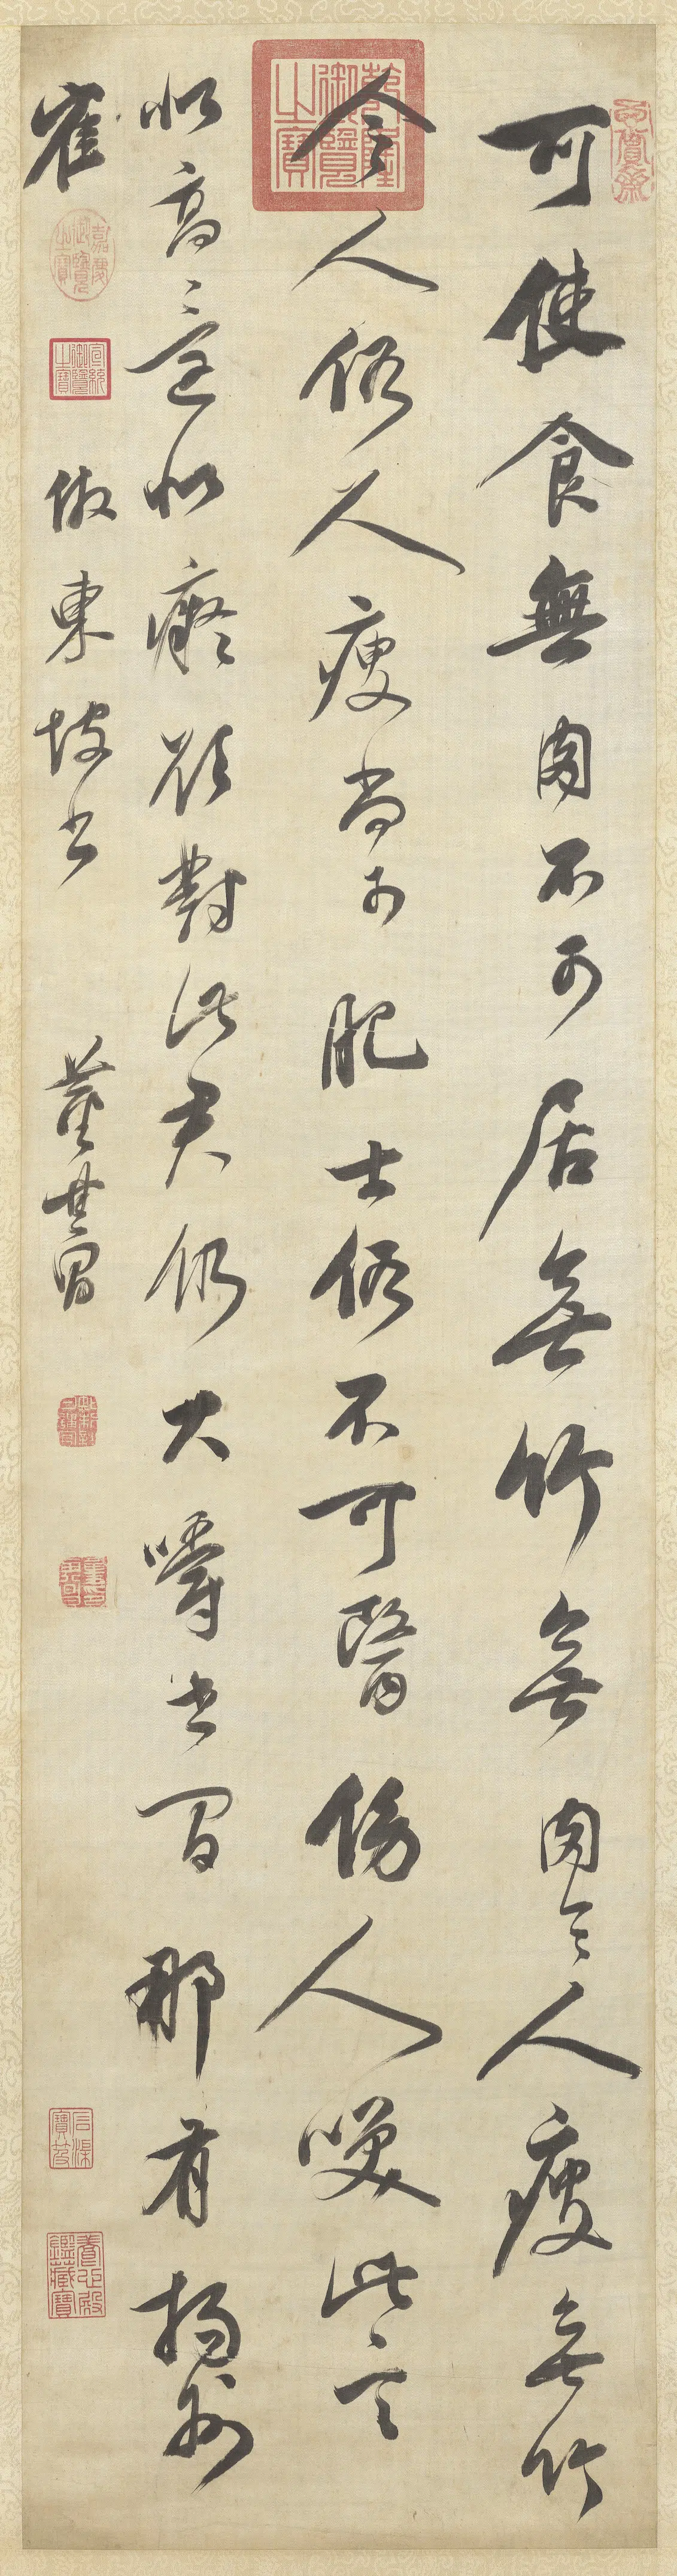 可使食無肉不可居無竹無肉令人瘦無竹
令人俗人瘦尚可肥士俗不可醫傍人笑此言
似高還似癡若對此君仍大嚼世間那有揚州
鶴
倣東坡書
董其昌
乾隆御覽之寶
嘉慶御覽之寶
宣統御覽之寶
石渠寶笈
養心殿鑑藏寶